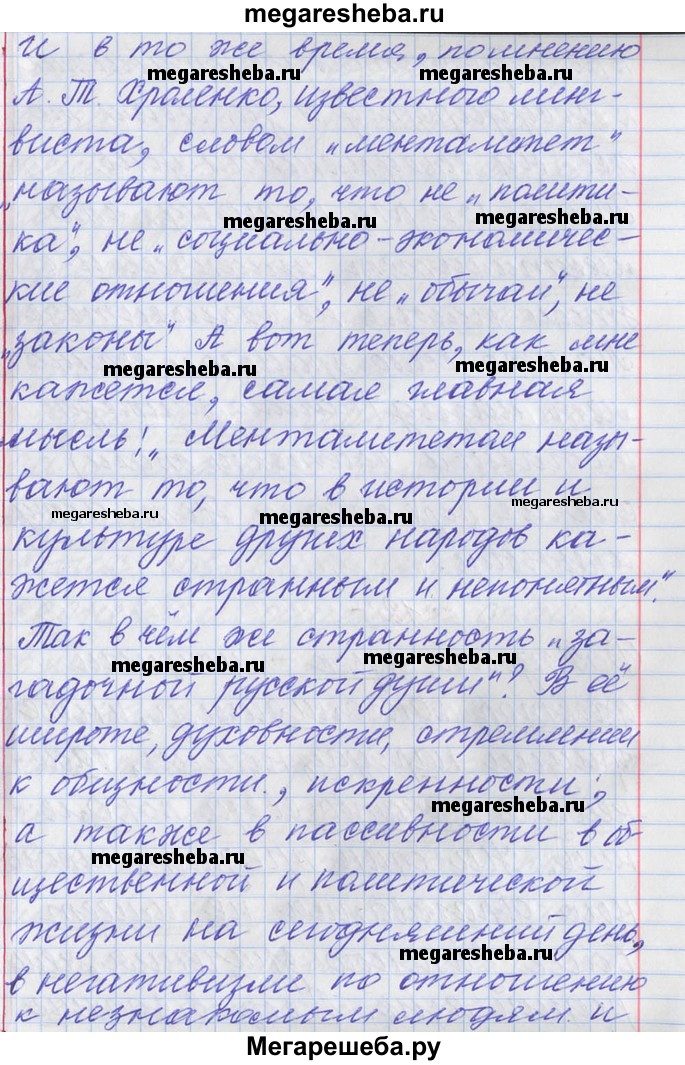 megaresheba.ru
И в то же время, помнению
megaresheba.ru megaresheba.ru
А. Т. Хроленко, известного линг-
виста, словом „менталитет"
„называют то, что не „полити-
megaresheba.ru megaresheba.ru
ка", не „социально-экономичес-
кие отношения", не „обычаи", не
„законы" А вот теперь, как мне
megaresheba.ru megaresheba.ru
кажется, самая главная
мысль! „Менталитетом назы-
вают то, что в истории и
megaresheba.ru megaresheba.ru megaresheba.ru
культуре других народов ка-
жется странным и непонятным".
Так в чём же странность „за-
megaresheba.ru megaresheba.ru
гадочной русской души"? В её
широте, духовности, стремлении
к общности, искренности;
megaresheba.ru
а также в пассивности в об-
megaresheba.ru
щественной и политической
жизни на сегодняшний день,
megaresheba.ru
в негативизме по отношению
к незнакомым людям и
Мегарешеба.ру